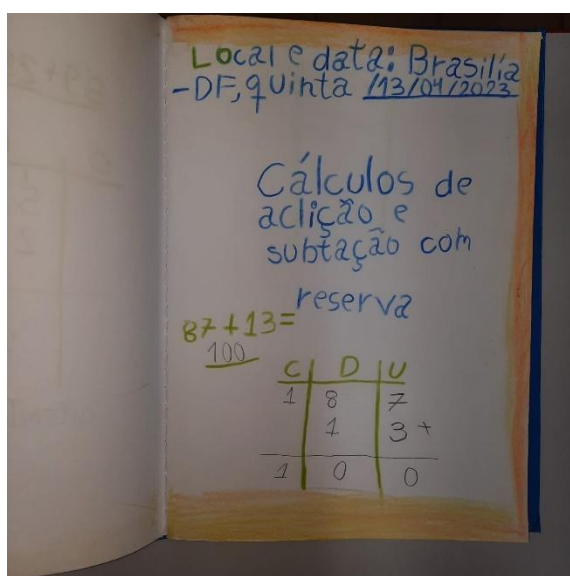 Local e data: Brasilía
-DF, quinta 13/04/2023
Cálculos de
aclição e
subtação com
reserva
87+13=
100
C D U
1 8 7
1 3 +
1 0 0